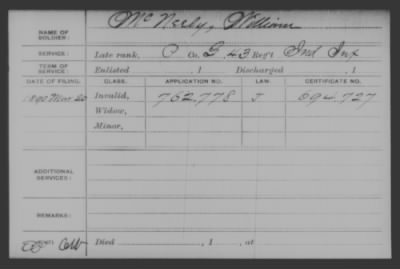 NAME OF SOLDIER: McNerly, William
SERVICE: Late rank, C Co. G, 43 Reg't Ind Inf
TERM OF SERVICE: Enlisted , 1 Discharged , 1
DATE OF FILING. CLASS. APPLICATION NO. LAW. CERTIFICATE NO.
1890 Invalid, 762.778 J 694.727
Widow,
Minor,
ADDITIONAL SERVICES:
REMARKS:
Died , 1 , at